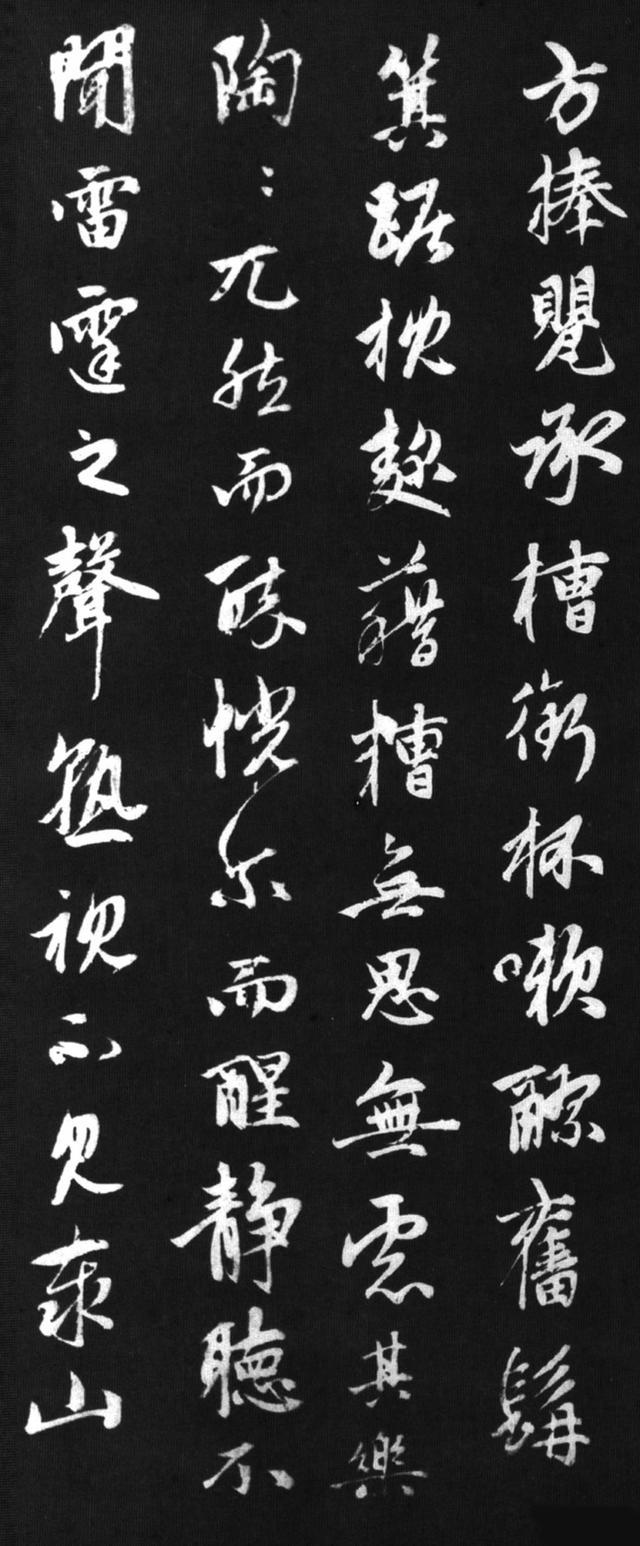 方捧甖承槽銜杯嗽醪奮髯
箕踞枕麹藉糟無思無慮其樂
陶〻兀然而醉恍尔而醒静聽不
聞雷霆之聲孰視不見泰山